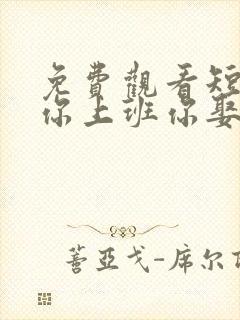 免費觀看短
你上班你娶
蓍亞戈-席尔